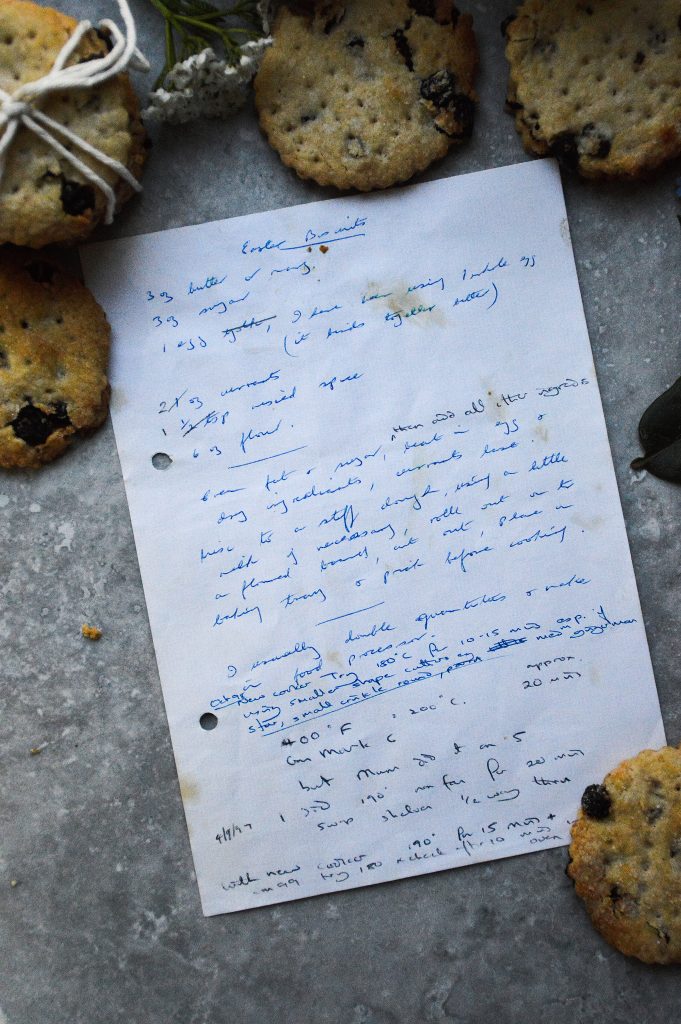 Easter Biscuits
3 oz butter or marg.
3 oz sugar
1 egg yolk, I have been using 1 whole egg
(it binds together better)
2 oz currants
1 ½ tsp mixed spice
6 oz flour.
then add all other ingreds
Cream fat & sugar, beat in egg &
dry ingredients, currants last.
Mix to a stiff dough, using a little
milk if necessary, rolle out on to
a floured board, cut out, place on
baking tray & prick before cooking.
I usually double quantities & make
in food processor.
New cooker Try 180°C for 10-15 mins esp. if
using smaller shape cutters eg
star, small crinkle round,
400°F = 200°C. approx.
Gas Mark 6 20 mins
but Mum did it on 5
4/9/97 I did 190° on fan for 20 mins
swop shelves ½ way thro
with new cooker 190° for 15 mins +
try 180 & check after 10 mins
oven